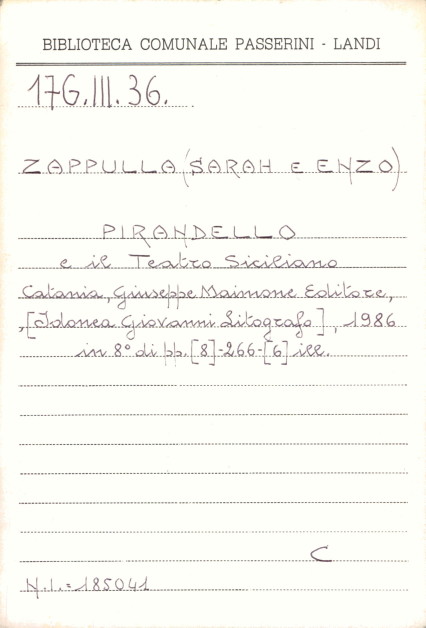 BIBLIOTECA COMUNALE PASSERINI - LANDI
17G.III.36.
ZAPPULLA (SARAH E ENZO)
PIRANDELLO
e il Teatro Siciliano
Catania, Giuseppe Maimone Editore,
,[Idonea Giovanni Litografo], 1986
in 8° di pp. [8]-266-[6] ill.
C
N.I.=185041